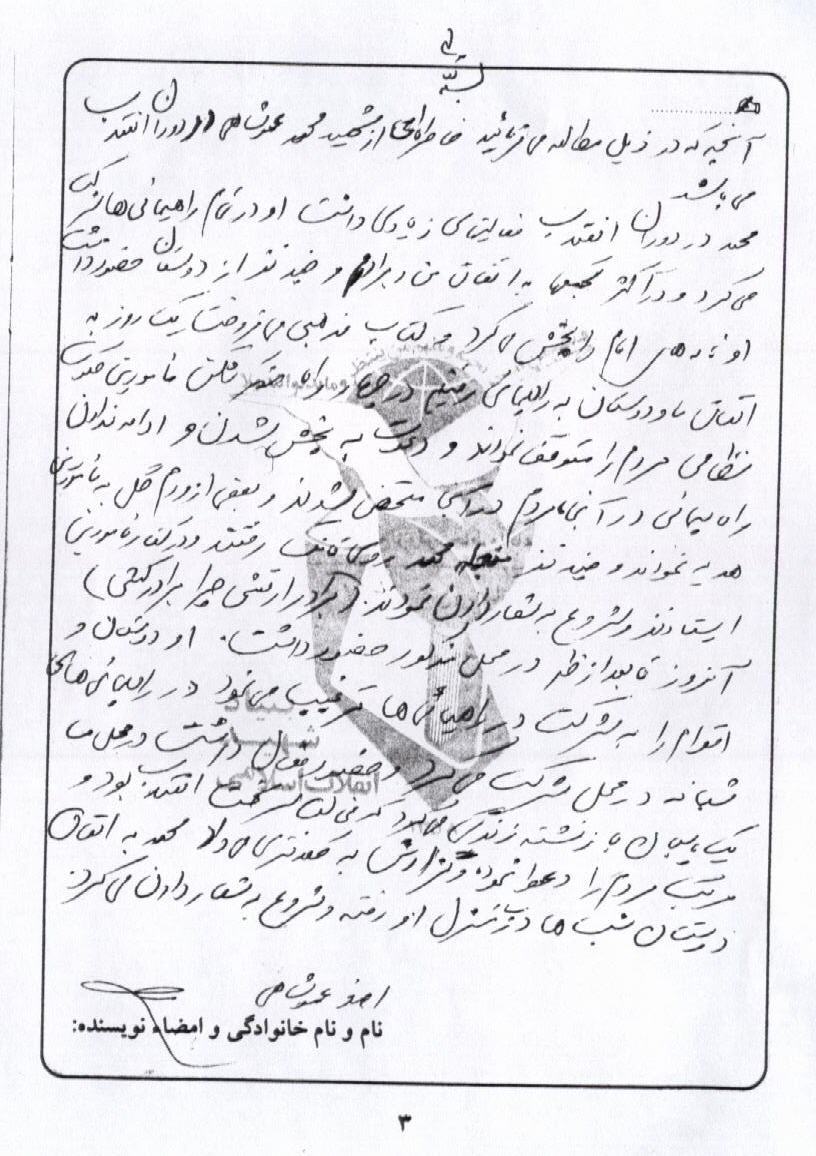 بسمه تعالی
آنچه که در ذیل مطالعه می فرمائید خاطراتی از شهید محمد عموشاهی از دوران انقلاب
می باشد
محمد در دوران انقلاب فعالیتهای زیادی داشت او در تمام راهپیمائی ها شرکت
می کرد و در اکثر به اتفاق من و برادرم و چند نفر از دوستان حضور داشت
او نامه های امام را پخش می کرد و کتاب مذهبی می فروخت یک روز به
اتفاق ما و دوستان به راهپیمائی رفتیم در چهار راه مأمورین حکومت
نظامی مردم را متوقف نمودند و دعوت به پخش شدن و ادامه ندادن
راه پیمائی در آنجا مردم متحصن شدند و بعضی از مردم گل به مأمورین
هدیه نمودند و چند نفر منجمله محمد روی تانک رفتند و در کنار مأمورین
ایستادند و شروع به شعار دادن نمودند. (برادر ارتشی چرا برادر کشی)
آنروز تا بعد از ظهر در محل مذکور حضور داشت. او دوستان و
اقوام را به شرکت در راهپیمائی ها ترغیب می نمود در راهپیمائی های
شبانه در محل شرکت می کرد و حضور فعال داشت در محل ما
یک پاسبان بازنشسته زندگی می کرد که مخالف سرسخت انقلاب بود و
مرتب مردم را دعوا نموده و گزارش به کلانتری می داد محمد به اتفاق
دوستان شب ها درب منزل او رفته و شروع به شعار دادن می کرد.
عموشاهی
نام و نام خانوادگی و امضاء نویسنده:
بنیاد
شهید
انقلاب اسلامی
۳